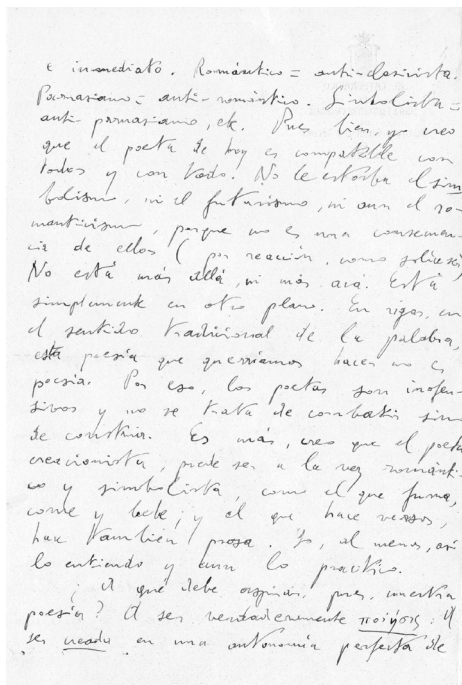 e inmediato. Romántico = anti-clasicista.
Parnasiano = anti-romántico. Simbolista =
anti-parnasiano, etc. Pues bien, yo creo
que el poeta de hoy es compatible con
todos y con todo. No le estorba el sim
bolismo, ni el futurismo, ni aun el ro-
manticismo, porque no es una consecuen-
cia de ellos (por reacción, como
No está más allá, ni más acá. Está
simplemente en otro plano. En rigor, en
el sentido tradicional de la palabra,
esta poesía que querríamos hacer no es
poesía. Por eso, los poetas son inofen-
sivos y no se trata de combatir sino
de construir. Es más, creo que el poeta
creacionista, puede ser a la vez románti-
co y simbolista, como el que fuma,
come y bebe; y el que hace versos,
hace también prosa. Yo, al menos, así
lo entiendo y aun lo practico.
¿A qué debe aspirar, pues, nuestra
poesía? A ser verdaderamente ποίησις: A
ser creada en una autonomía perfecta de